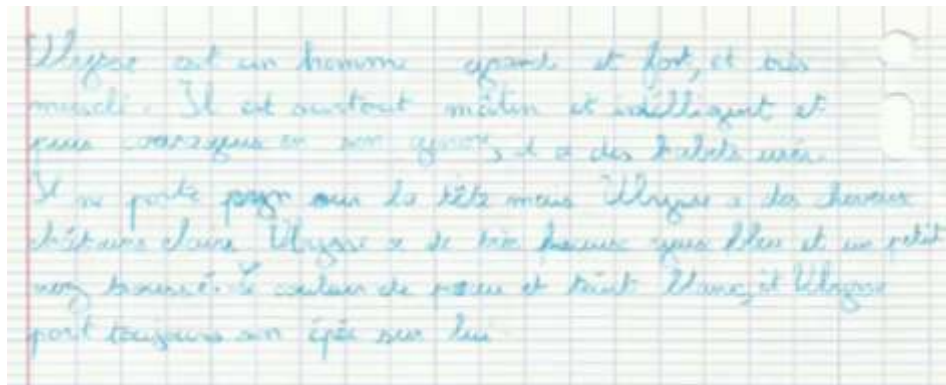 Ulysse est un homme grand et fort, et très
musclé. Il est surtout malin et intelligent et
puis courageux en son genre, il a des habits usés.
Il ne porte rien sur la tête mais Ulysse a des cheveux
châtains claire. Ulysse a de très beaux yeux bleu et un petit
nez trousse. Le couleur de peau et teint blanc, et Ulysse
port toujours son épée sur lui